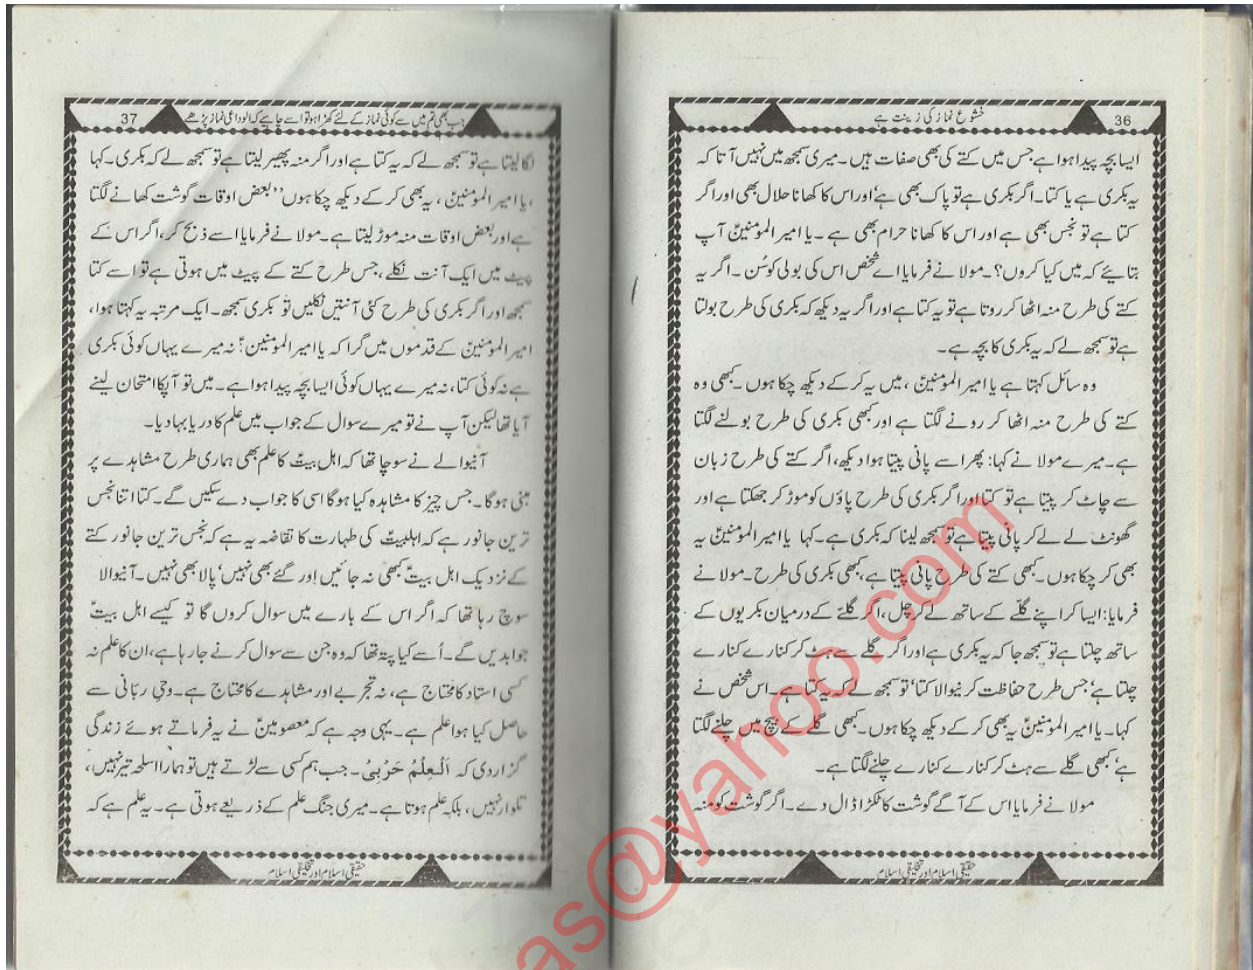 36
خشوع نماز کی زینت ہے
ایسا بچہ پیدا ہوا ہے جس میں کتے کی بھی صفات ہیں۔ میری سمجھ میں نہیں آتا کہ
یہ بکری ہے یا کتا۔ اگر بکری ہے تو پاک بھی ہے اور اس کا کھانا حلال بھی اور اگر
کتا ہے تو نجس بھی ہے اور اس کا کھانا حرام بھی ہے۔ یا امیر المومنینؑ آپ
بتایئے کہ میں کیا کروں؟۔ مولا نے فرمایا اے شخص اس کی بولی کو سُن۔ اگر یہ
کتے کی طرح منہ اٹھا کر روتا ہے تو یہ کتا ہے اور اگر یہ دیکھ کہ بکری کی طرح بولتا
ہے تو سمجھ لے کہ یہ بکری کا بچہ ہے۔
وہ سائل کہتا ہے یا امیر المومنینؑ، میں یہ کر کے دیکھ چکا ہوں۔ کبھی وہ
کتے کی طرح منہ اٹھا کر رونے لگتا ہے اور کبھی بکری کی طرح بولنے لگتا
ہے۔ میرے مولا نے کہا: پھر اسے پانی پیتا ہوا دیکھ، اگر کتے کی طرح زبان
سے چاٹ کر پیتا ہے تو کتا اور اگر بکری کی طرح پاؤں کو موڑ کر جھکتا ہے اور
گھونٹ لے لے کر پانی پیتا ہے تو سمجھ لینا کہ بکری ہے۔ کہا یا امیر المومنینؑ یہ
بھی کر چکا ہوں۔ کبھی کتے کی طرح پانی پیتا ہے، کبھی بکری کی طرح۔ مولا نے
فرمایا: ایسا کر اپنے گلّے کے ساتھ لے کر چل، اگر گلّے کے درمیان بکریوں کے
ساتھ چلتا ہے تو سمجھ جا کہ یہ بکری ہے اور اگر گلے سے ہٹ کر کنارے کنارے
چلتا ہے، جس طرح حفاظت کرنیوالا کتا، تو سمجھ لے کہ یہ کتا ہے۔ اس شخص نے
کہا۔ یا امیر المومنینؑ یہ بھی کر کے دیکھ چکا ہوں۔ کبھی گلے کے بیچ میں چلنے لگتا
ہے، کبھی گلے سے ہٹ کر کنارے کنارے چلنے لگتا ہے۔
مولا نے فرمایا اس کے آگے گوشت کا ٹکڑا ڈال دے۔ اگر گوشت کو منہ
حقیقی اسلام اور تخلیقی اسلام
جب بھی تم میں سے کوئی نماز کے لئے کھڑا ہو تو اسے چاہیے کہ الوداعی نماز پڑھے
37
لگا لیتا ہے تو سمجھ لے کہ یہ کتا ہے اور اگر منہ پھیر لیتا ہے تو سمجھ لے کہ بکری۔ کہا
،یا امیر المومنینؑ، یہ بھی کر کے دیکھ چکا ہوں ''بعض اوقات گوشت کھانے لگتا
ہے اور بعض اوقات منہ موڑ لیتا ہے۔ مولا نے فرمایا اسے ذبح کر، اگر اس کے
پیٹ میں ایک آنت نکلے، جس طرح کتے کے پیٹ میں ہوتی ہے تو اسے کتا
سمجھ اور اگر بکری کی طرح کئی آنتیں نکلیں تو بکری سمجھ۔ ایک مرتبہ یہ کہتا ہوا،
امیر المومنینؑ کے قدموں میں گرا کہ یا امیر المومنینؑ! نہ میرے یہاں کوئی بکری
ہے نہ کوئی کتا، نہ میرے یہاں کوئی ایسا بچہ پیدا ہوا ہے۔ میں تو آپکا امتحان لینے
آیا تھا لیکن آپ نے تو میرے سوال کے جواب میں علم کا دریا بہا دیا۔
آنیوالے نے سوچا تھا کہ اہل بیتؑ کا علم بھی ہماری طرح مشاہدے پر
مبنی ہوگا۔ جس چیز کا مشاہدہ کیا ہوگا اسی کا جواب دے سکیں گے۔ کتا اتنا نجس
ترین جانور ہے کہ اہلبیتؑ کی طہارت کا تقاضہ یہ ہے کہ نجس ترین جانور کتے
کے نزدیک اہل بیتؑ کبھی نہ جائیں اور گئے بھی نہیں، پالا بھی نہیں۔ آنیوالا
سوچ رہا تھا کہ اگر اس کے بارے میں سوال کروں گا تو کیسے اہل بیتؑ
جواب دیں گے۔ اُسے کیا پتہ تھا کہ وہ جن سے سوال کرنے جا رہا ہے، ان کا علم نہ
کسی استاد کا محتاج ہے، نہ تجربے اور مشاہدے کا محتاج ہے۔ وحیِ ربانی سے
حاصل کیا ہوا علم ہے۔ یہی وجہ ہے کہ معصومینؑ نے یہ فرماتے ہوئے زندگی
گزار دی کہ اَلْعِلْمُ حَرْبِیْ۔ جب ہم کسی سے لڑتے ہیں تو ہمارا اسلحہ تیر نہیں،
تلوار نہیں، بلکہ علم ہوتا ہے۔ میری جنگ علم کے ذریعے ہوتی ہے۔ یہ علم ہے کہ
حقیقی اسلام اور تخلیقی اسلام
as@yahoo.com